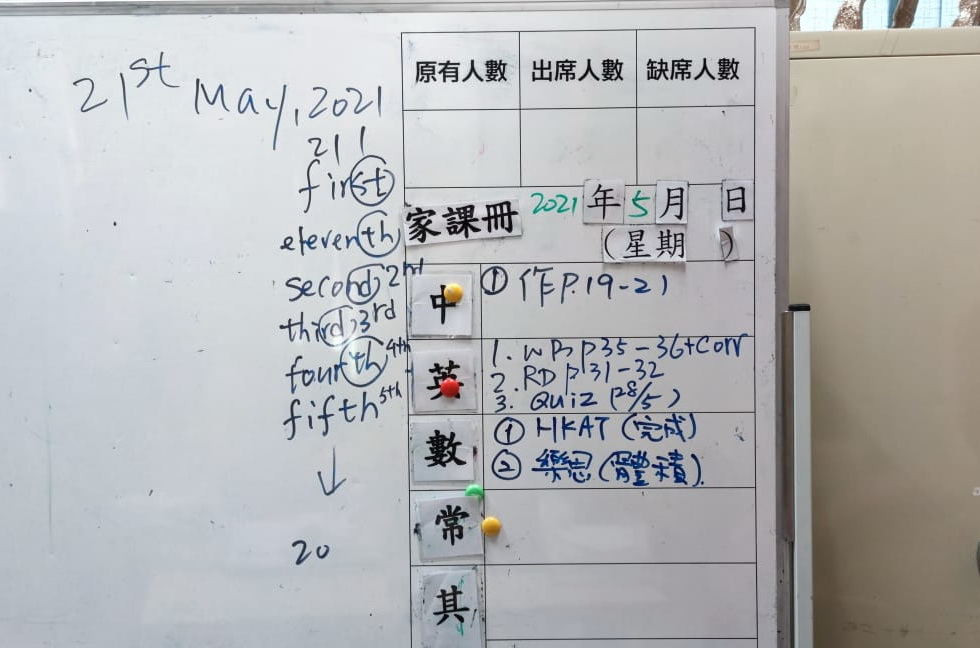 21st May, 2021
211
first
eleventh
second 2nd
third 3rd
fourth 4th
fifth 5th
↓
20
原有人數 出席人數 缺席人數
家課冊 2021年5月 日
(星期 )
中 ① 作P.19-21
英 1. WB p35-36+Corr
2. RD p31-32
3. Quiz (28/5)
數 ① HKAT (完成)
② 樂思(體積).
常
其